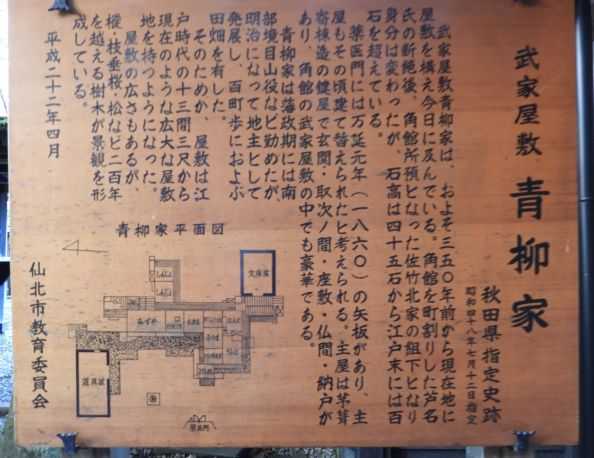 武家屋敷 青柳家
秋田県指定史跡
昭和四十八年七月十二日指定
武家屋敷青柳家は、およそ三五〇年前から現在地に
屋敷を構え今日に及んでいる。角館を町割りした芦名
氏の断絶後、角館所預となった佐竹北家の組下となり
身分は変わったが、石高は四十五石から江戸末には百
石を超えている。
薬医門には万延元年（一八六〇）の矢板があり、主
屋もその頃建て替えられたと考えられる。主屋は茅葺
寄棟造の鍵屋で玄関・取次ノ間・座敷・仏間・納戸が
あり、角館の武家屋敷の中でも豪華である。
青柳家は藩政期には南
部境目山役など勤めたが、
明治になって地主として
発展し、百町歩におよぶ
田畑を有した。
そのためか、屋敷は江
戸時代の十三間三尺から
現在のような広大な屋敷
地を持つようになった。
屋敷の広さもあるが
樅・枝垂桜・松など二百年
を越える樹木が景観を形
成している。
平成二十二年四月
青柳家平面図
文庫蔵
道具蔵
薬医門
仙北市教育委員会